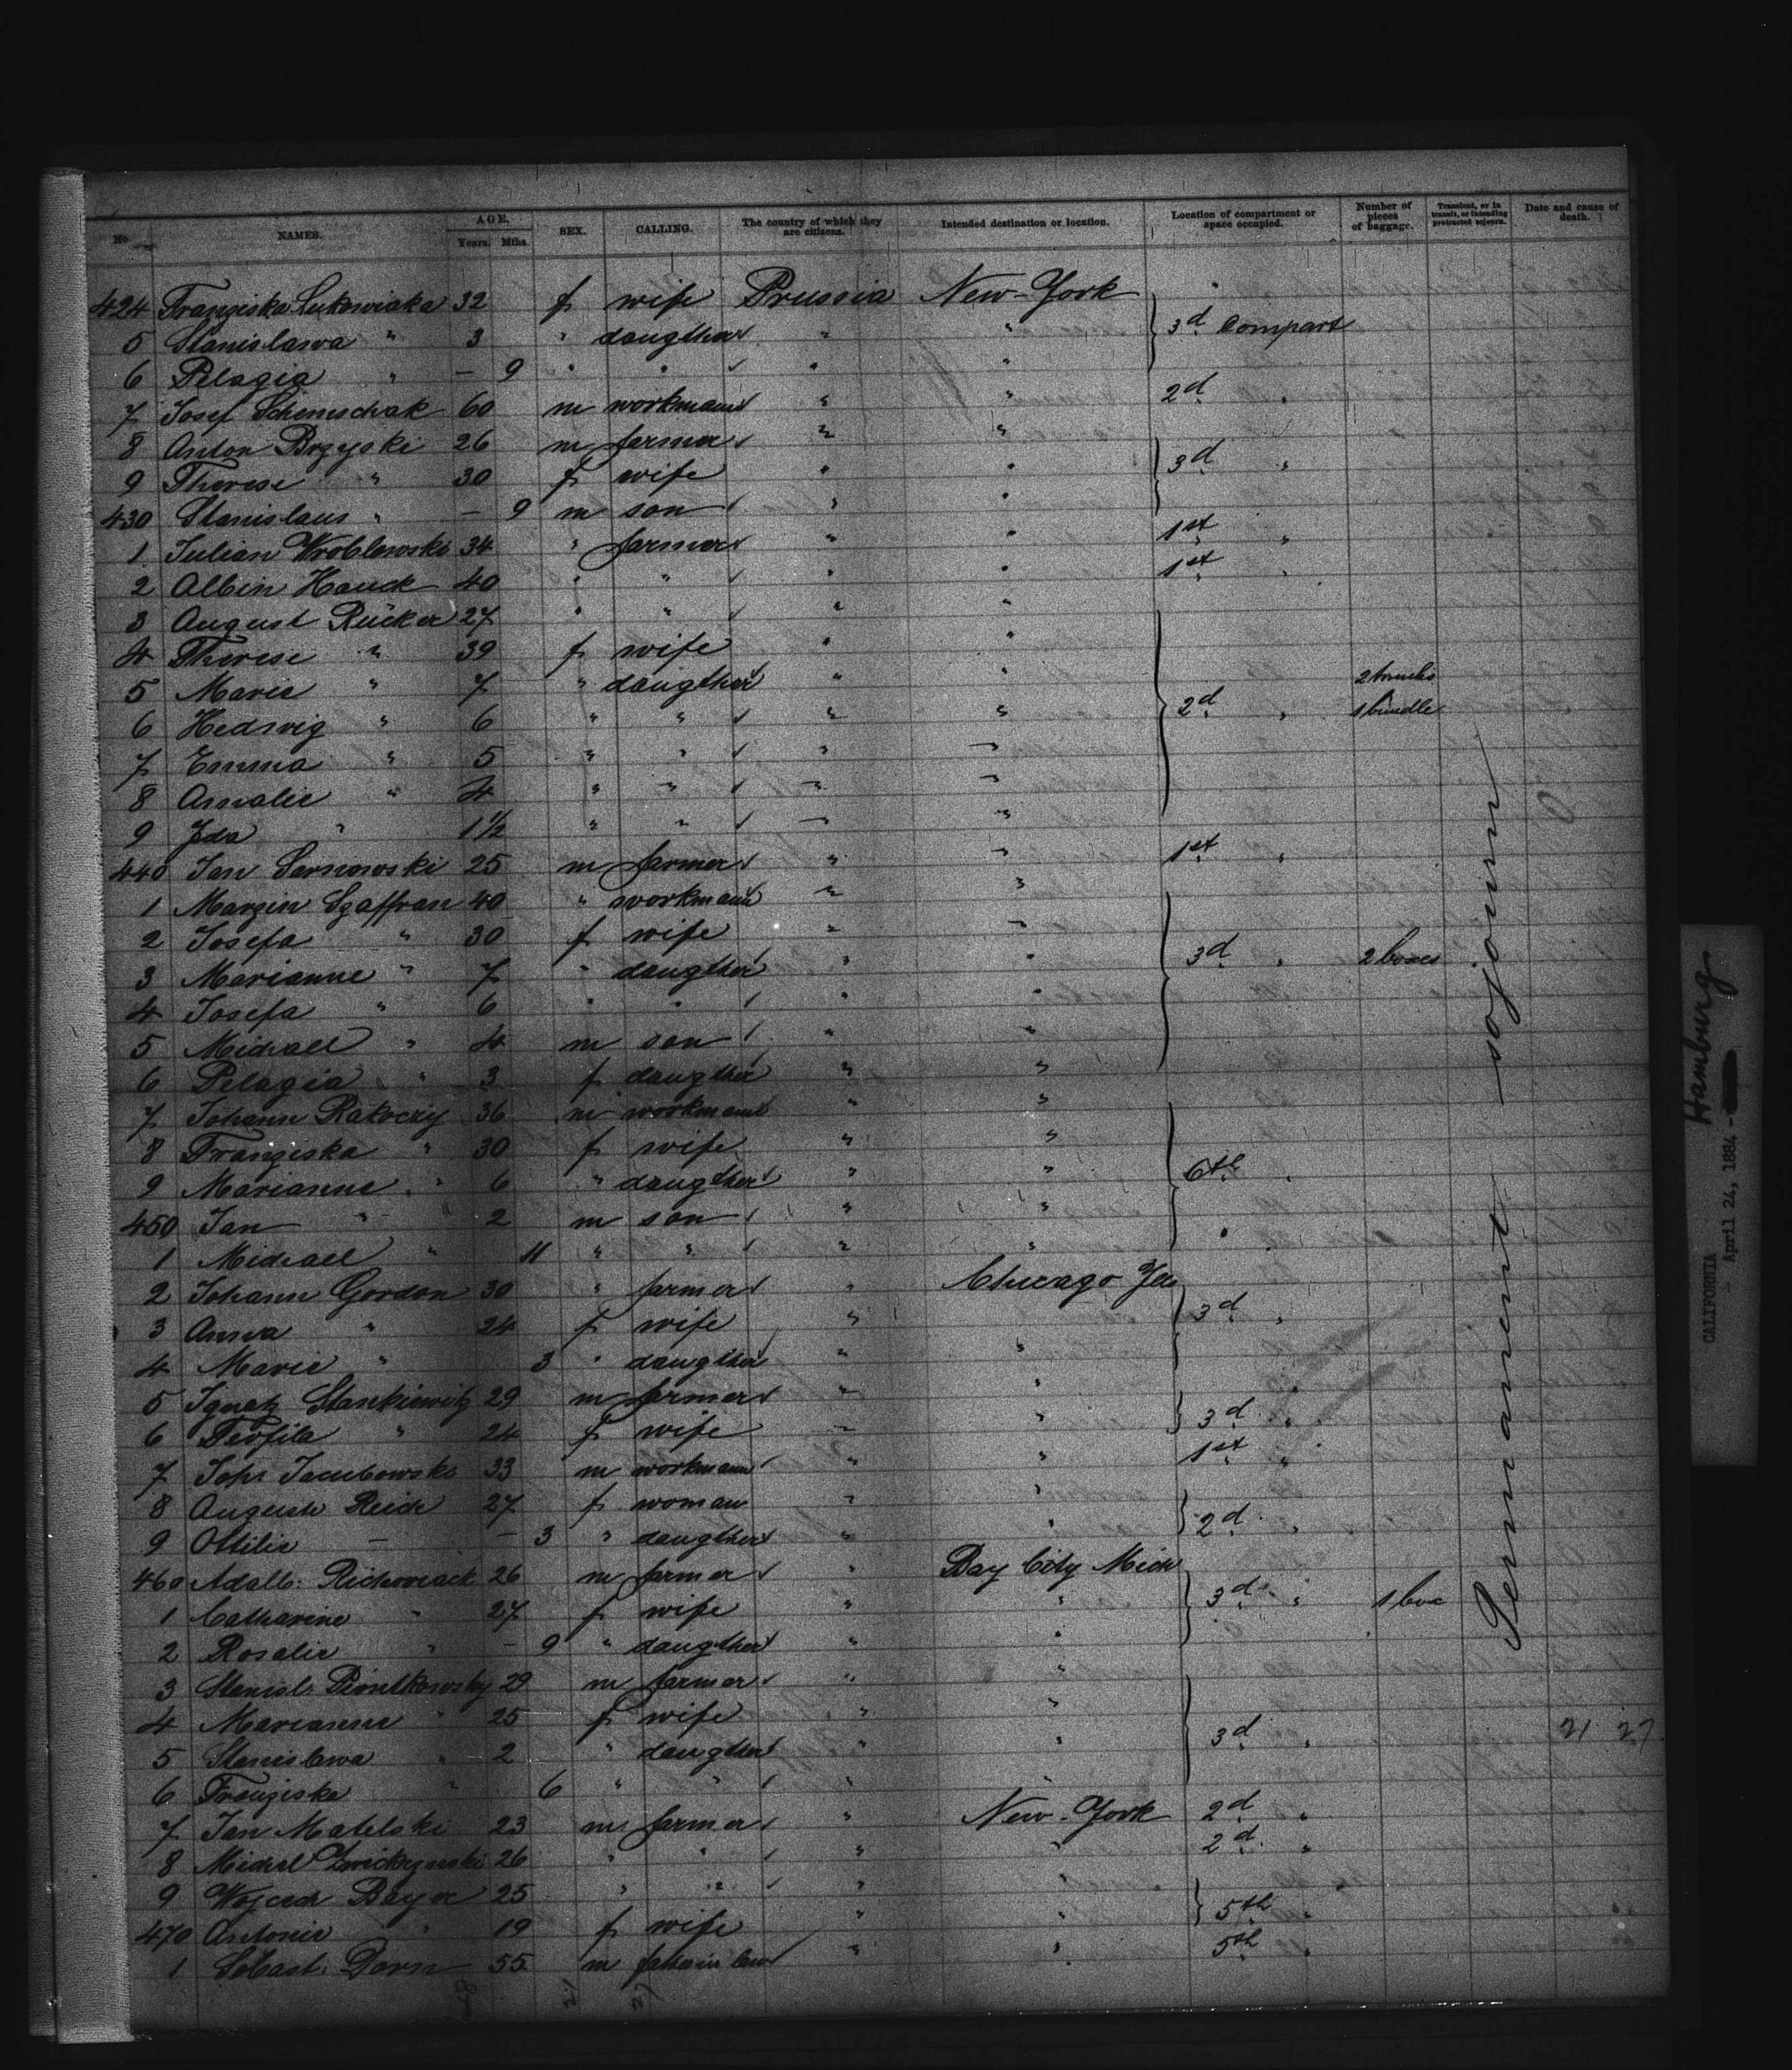 No. NAMES. AGE. Years. Mths. SEX. CALLING. The country of which they are citizens. Intended destination or location. Location of compartment or space occupied. Number of pieces of baggage. Transient, or in transit, or intending protracted sojourn. Date and cause of death.
424 Franziska Lukowiaka 32 f wife Prussia New-York
5 Stanislawa " 3 " daugther " " 3d Compart
6 Pelagia " – 9 " " " "
7 Josef Schemschak 60 m workmann " " 2d "
8 Anton Brzyski 26 m farmer " "
9 Therese " 30 f wife " " 3d "
430 Stanislaus " – 9 m son " "
1 Julian Wroblewski 34 " farmer " " 1st "
2 Albin Hauck 40 " " " " 1st "
3 August Rücker 27 " " " "
4 Therese " 39 f wife " "
5 Marie " 7 " daugther " " 2 trunks
6 Hedwig " 6 " " " " 2d " 1 bundle
7 Emma " 5 " " " "
8 Amalie " 4 " " " "
9 Ida " 1 1/2 " " " "
440 Jan Sarnowski 25 m farmer " " 1st "
1 Marzin Szaffran 40 " workmann " "
2 Josefa " 30 f wife " "
3 Marianne " 7 " daugther " " 3d " 2 boxes
4 Josefa " 6 " " " "
5 Michael " 4 m son " "
6 Pelagia " 3 f daugther " "
7 Johann Rakoczy 36 m workmann " "
8 Franziska " 30 f wife " "
9 Marianne " 6 " daugther " " 6th "
450 Jan " 2 m son " "
1 Michael " 11 " " " "
2 Johann Gordon 30 " farmer " Chicago Ills
3 Anna " 24 f wife " 3d "
4 Marie " 3 " daugther " "
5 Ignatz Stankiewitz 29 m farmer " "
6 Teofila " 24 f wife " " 3d "
7 Joh: Jacubowski 33 m workmann " " 1st "
8 Auguste Reich 27 f woman " "
9 Ottilie – – 3 " daugther " " 2d "
460 Adalb: Richoviack 26 m farmer " Bay City Mich
1 Catharine " 27 f wife " " 3d " 1 box
2 Rosalie " – 9 " daugther " "
3 Stanisl: Piontkowsky 29 m farmer " "
4 Marianne " 25 f wife " "
5 Stanislawa " 2 " daugther " " 3d "
6 Franziska " 6 " " " "
7 Jan Matelski 23 m farmer " New-York 2d "
8 Michel 26 " " " " 2d "
9 Wojcech Bayer 25 " " " "
470 Antonie " 19 f wife " " 5th "
1 Sebast: Dorn 55 m father in law " " 5th "
Permanent sojourn
21 27
21 27
CALIFORNIA
April 24, 1884 -
Hamburg